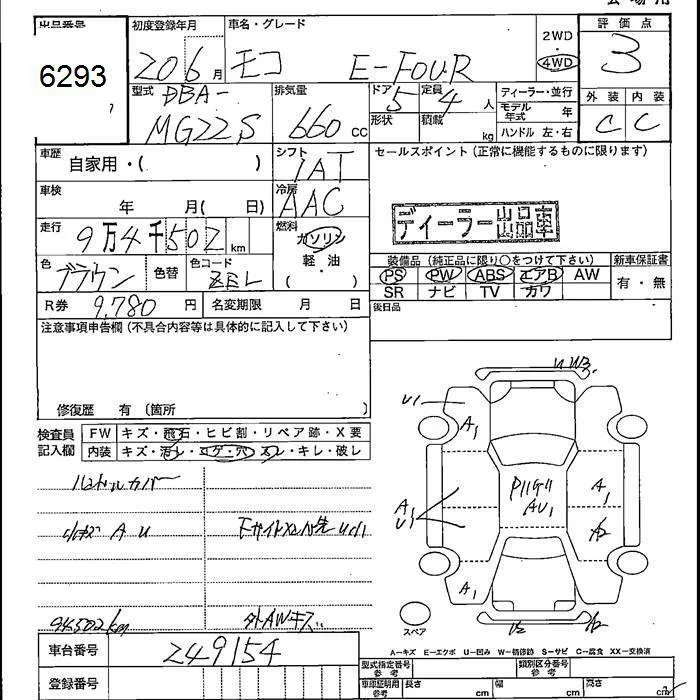 会場用
出品番号
6293
初度登録年月
20 6 月
車名・グレード
モコ E-FOUR
2WD
4WD
評価点
3
外装 内装
C C
型式 DBA-
MG22S
排気量
660 cc
ドア 5
形状
定員 4 人
積載 kg
ディーラー・並行
モデル年式 年
ハンドル 左・右
車歴
自家用・( )
シフト
IAT
車検
年 月( 日)
冷房
AAC
走行
9万4千502 km
燃料
ガソリン
軽・油
( )
色
ブラウン
色替
色コード
ZEL
R券 9,780 円
名変期限 月 日
セールスポイント(正常に機能するものに限ります)
ディーラー出品車
装備品(純正品に限り○をつけて下さい)
PS PW ABS エアB AW
SR ナビ TV カワ
新車保証書
有・無
後日品
注意事項申告欄(不具合内容等は具体的に記入して下さい)
修復歴 有 (箇所 )
検査員
記入欄
FW キズ・飛石・ヒビ割・リペア跡・X要
内装 キズ・汚レ・コゲ・穴・スレ・キレ・破レ
ハンドルカバー
小キズ A U
94502km
外AWキズ
U1
A1
A1
U1
A1
A1
スペア
A-キズ E-エクボ U-凹み W-補修跡 S-サビ C-腐食 XX-交換済
車台番号 249154
登録番号
型式指定番号
参考
類別区分番号
参考
車印証明用
参考
長さ cm
幅 cm
高さ cm